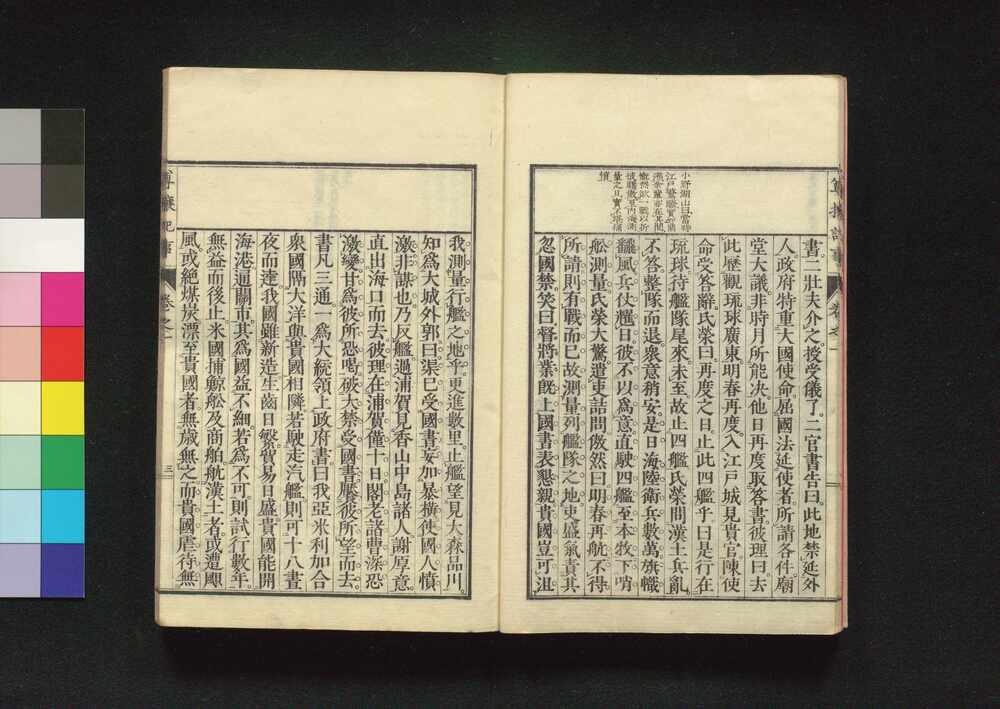 小野湖山曰當時
江戸
書二壯夫介之授受儀了二官書告曰此地禁延外
人政府特重大國使命屈國法延使者所請各件廟
堂大議非時月所能决他日再度取答書彼理曰去
此歷觀琉球廣東明春再度入江戸城見貴官陳使
命受答辭氏榮曰再度之日止此四艦乎曰是行在
琉球待艦隊尾來未至故止四艦氏榮問漢土兵亂
不答整隊而退衆意稍安是日海陸衛兵數萬旗幟
飜風兵仗耀日彼不以爲意直駛四艦至本牧下哨
舩測量氏榮大驚遣吏詰問傲然曰明春再航不得
所請則有戰而已故測量列艦隊之地吏盛氣責其
忽國禁笑曰督將業旣上國書表懇親貴國豈可沮
我測量行艦之地乎更進數里止艦望見大森品川
知爲大城外郭曰渠已受國書妄加暴橫使國人憤
激非謀也乃反艦過浦賀見香山中島諸人謝厚意
直出海口而去彼理在浦賀僅十日閣老諸曹深恐
激變甘爲彼所恐喝破大禁受國書饜彼所望而去
書凡三通一爲大統領上政府書曰我亞米利加合
衆國隔大洋與貴國相隣若駛走汽艦則可十八晝
夜而達我國雖新造生齒日繁貿易日盛貴國能開
海港通關市其爲國益不細若爲不可則試行數年
無益而後止米國捕鯨舩及商舶航漢土者或遭颶
風或絶煤炭漂至貴國者無歳無之而貴國虐待無
卷之一
三